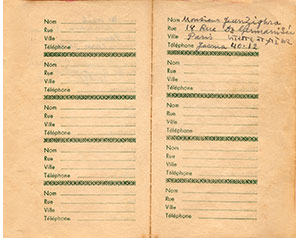 Nom
Rue
Ville
Téléphone
Nom
Rue
Ville
Téléphone
Nom
Rue
Ville
Téléphone
Nom
Rue
Ville
Téléphone
Nom
Rue
Ville
Téléphone
Nom Monsieur
Rue 14 Rue
Ville Paris
Téléphone Jasmin 40-12
Nom
Rue
Ville
Téléphone
Nom
Rue
Ville
Téléphone
Nom
Rue
Ville
Téléphone
Nom
Rue
Ville
Téléphone